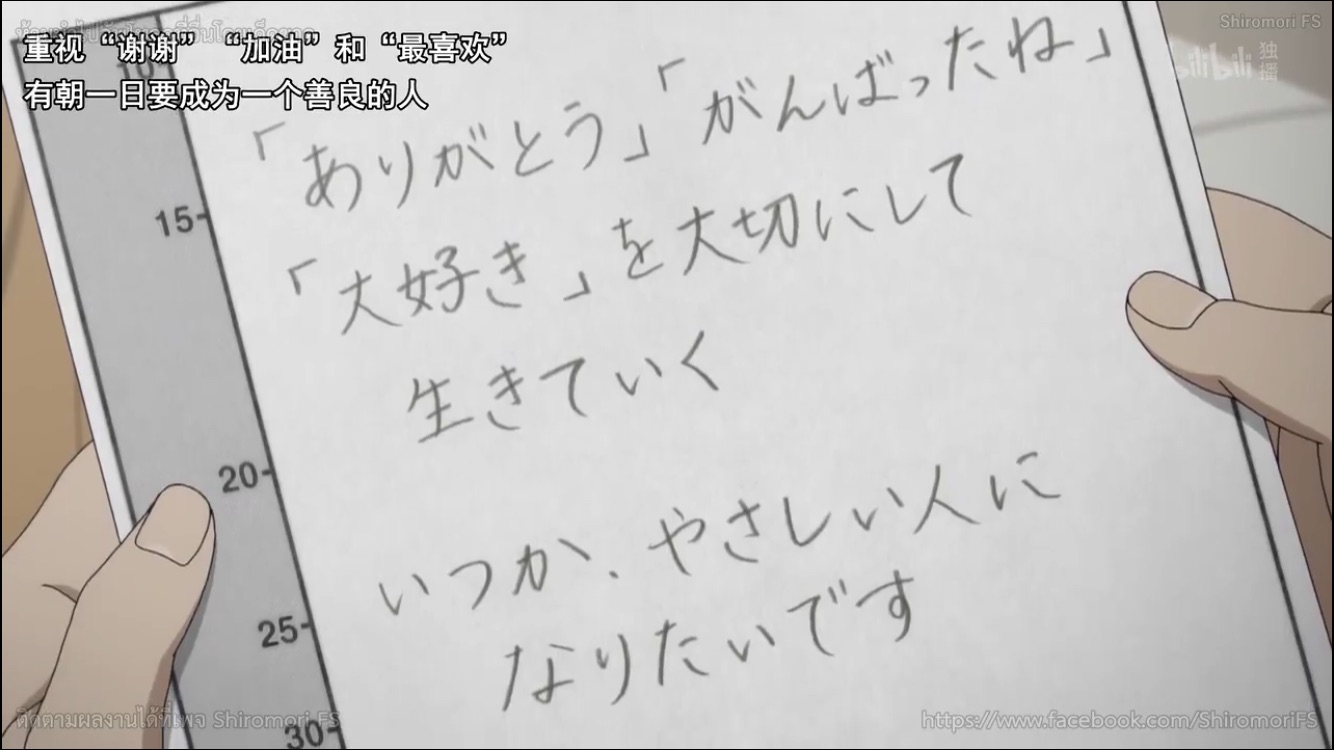 重视“谢谢”“加油”和“最喜欢”
有朝一日要成为一个善良的人
Shiromori FS
bilibili 独播
10-
15-
20-
25-
30-
「ありがとう」「がんばったね」
「大好き」を大切にして
生きていく
いつか、やさしい人に
なりたいです
ติดตามผลงานได้ที่เพจ Shiromori FS
https://www.facebook.com/ShiromoriFS